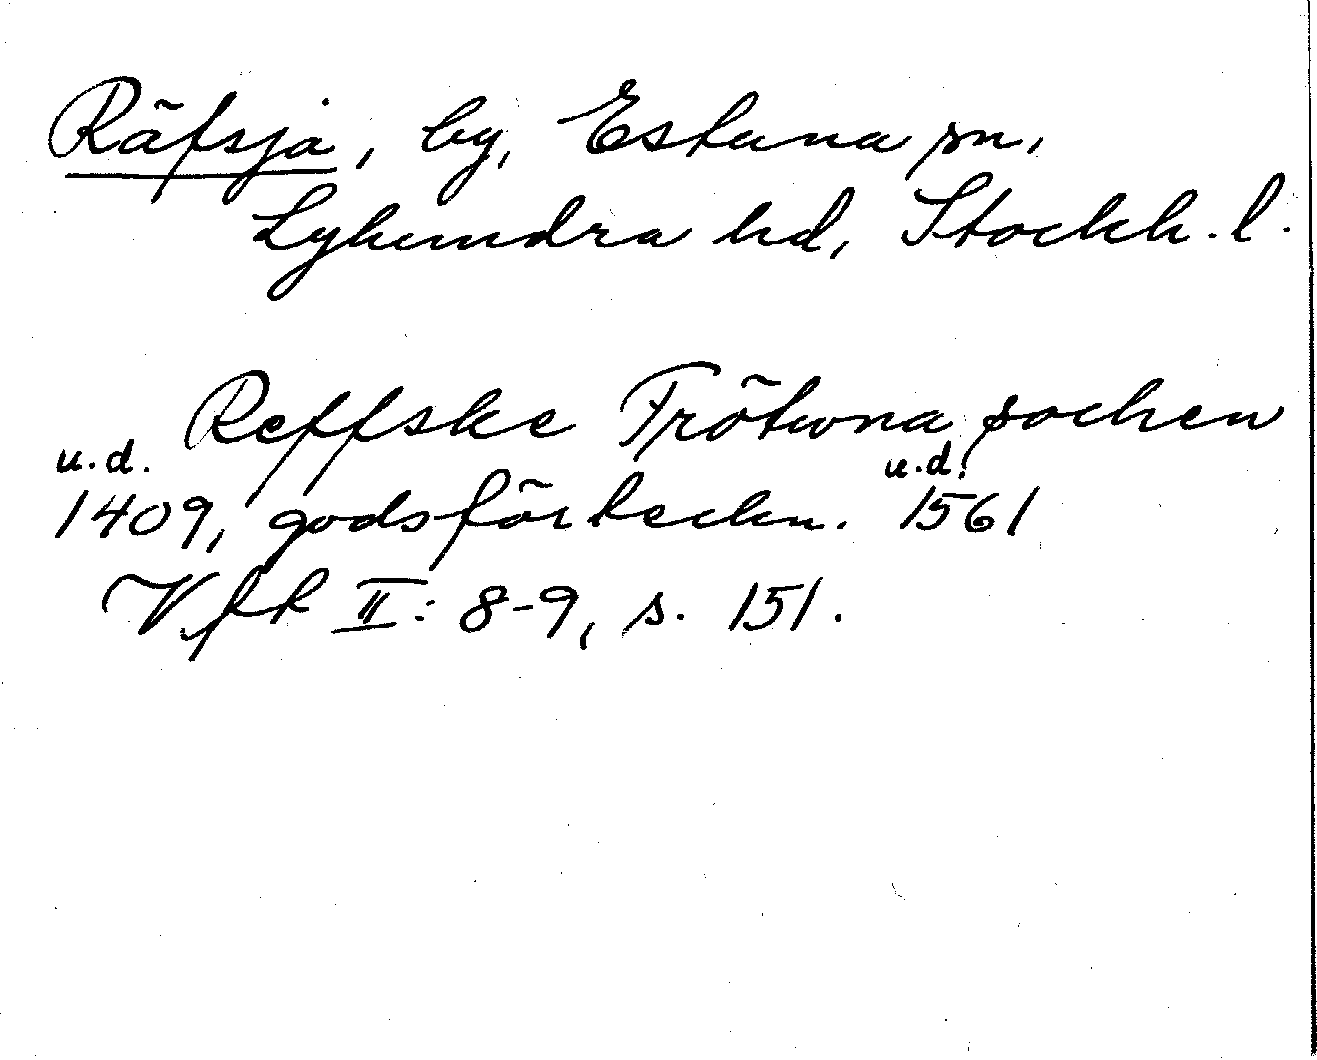 Räfsja, by, Estuna sn,
Lyhundra hd, Stockh. l.
Reffske Frötwna sochen
u.d. u.d.
1409, godsförteckn. 1561
Vfr II: 8-9, s. 151.